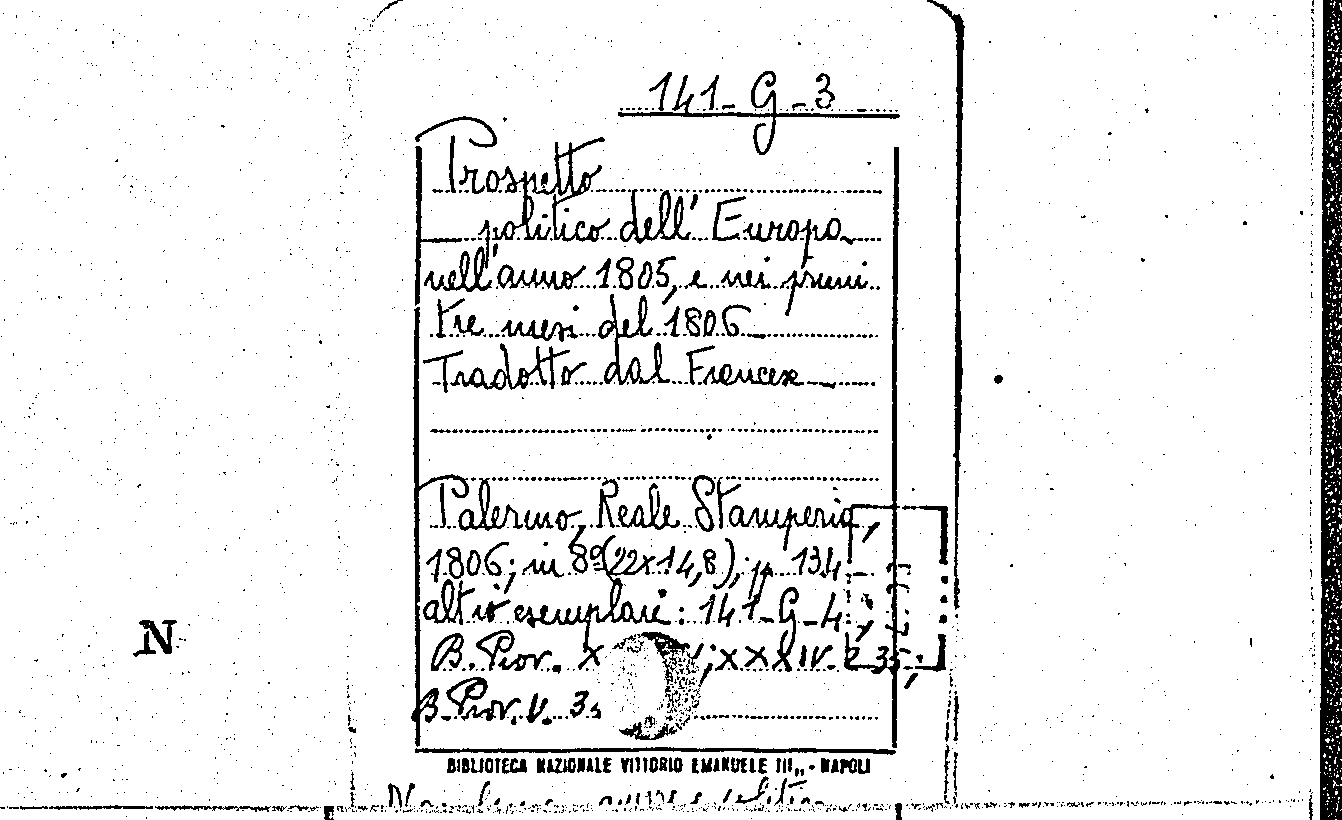 141-G-3
Prospetto
politico dell'Europa
nell'anno 1805, e nei primi
tre mesi del 1806
Tradotto dal Francese
Palermo, Reale Stamperia,
1806; in 8º (22x14,8); p. 134
altri esemplari: 141-G-4;
B. Prov. X ;XXXIV. 35;
B. Prov. V. 3
N
BIBLIOTECA NAZIONALE VITTORIO EMANUELE III,, - NAPOLI